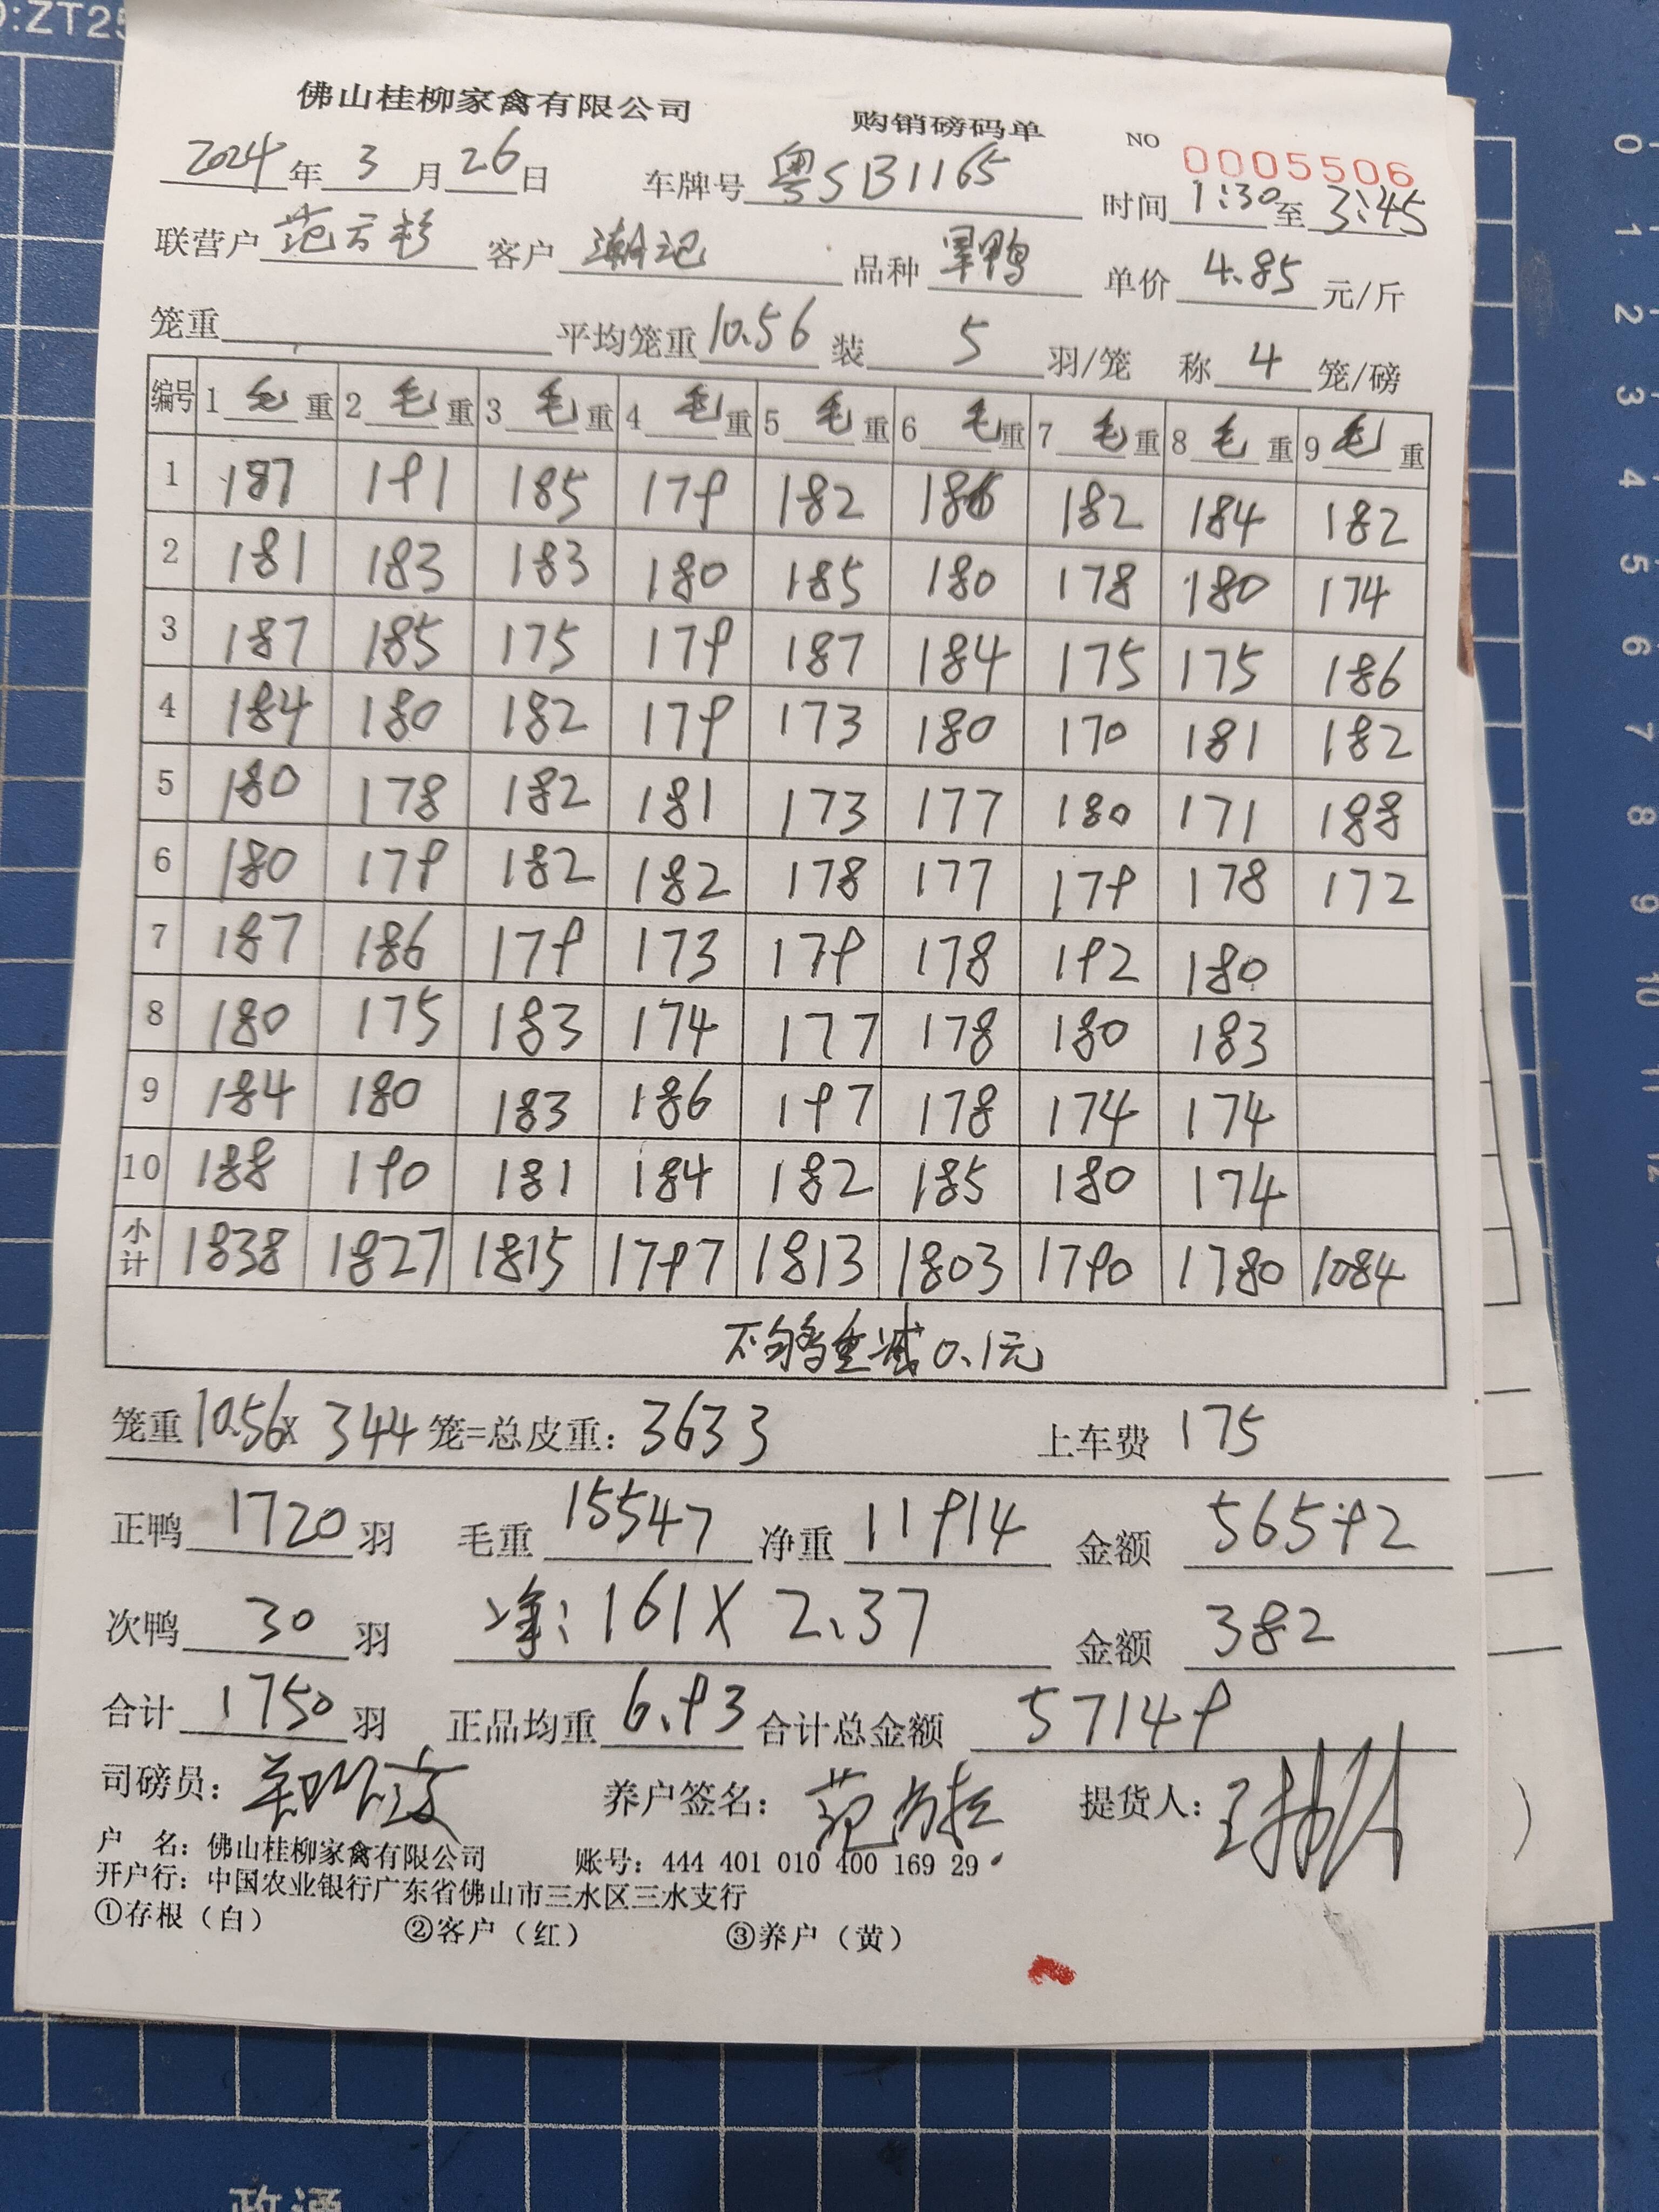 :ZT25
佛山桂柳家禽有限公司 购销磅码单 NO 0005506
2024年3月26日 车牌号 粤SB1165 时间 1:30至3:45
联营户 范 客户 潮记 品种 旱鸭 单价 4.85 元/斤
笼重 平均笼重 10.56 装 5 羽/笼 称 4 笼/磅
编号 1 毛 重 2 毛 重 3 毛 重 4 毛 重 5 毛 重 6 毛 重 7 毛 重 8 毛 重 9 毛 重
1 187 191 185 179 182 186 182 184 182
2 181 183 183 180 185 180 178 180 174
3 187 185 175 179 187 184 175 175 186
4 184 180 182 179 173 180 170 181 182
5 180 178 182 181 173 177 180 171 188
6 180 179 182 182 178 177 179 178 172
7 187 186 179 173 179 178 192 180
8 180 175 183 174 177 178 180 183
9 184 180 183 186 197 178 174 174
10 188 190 181 184 182 185 180 174
小计 1838 1827 1815 1797 1813 1803 1790 1780 1084
不够重减0.1元
笼重 10.56 x 344 笼=总皮重: 3633 上车费 175
正鸭 1720 羽 毛重 15547 净重 11914 金额 56592
次鸭 30 羽 净: 161 X 2.37 金额 382
合计 1750 羽 正品均重 6.93 合计总金额 57149
司磅员: 养户签名: 范 提货人:
户 名: 佛山桂柳家禽有限公司 账号: 444 401 010 400 169 29
开户行: 中国农业银行广东省佛山市三水区三水支行
①存根（白） ②客户（红） ③养户（黄）
0
1
2
3
4
5
6
7
8
9
10
11
12
政通